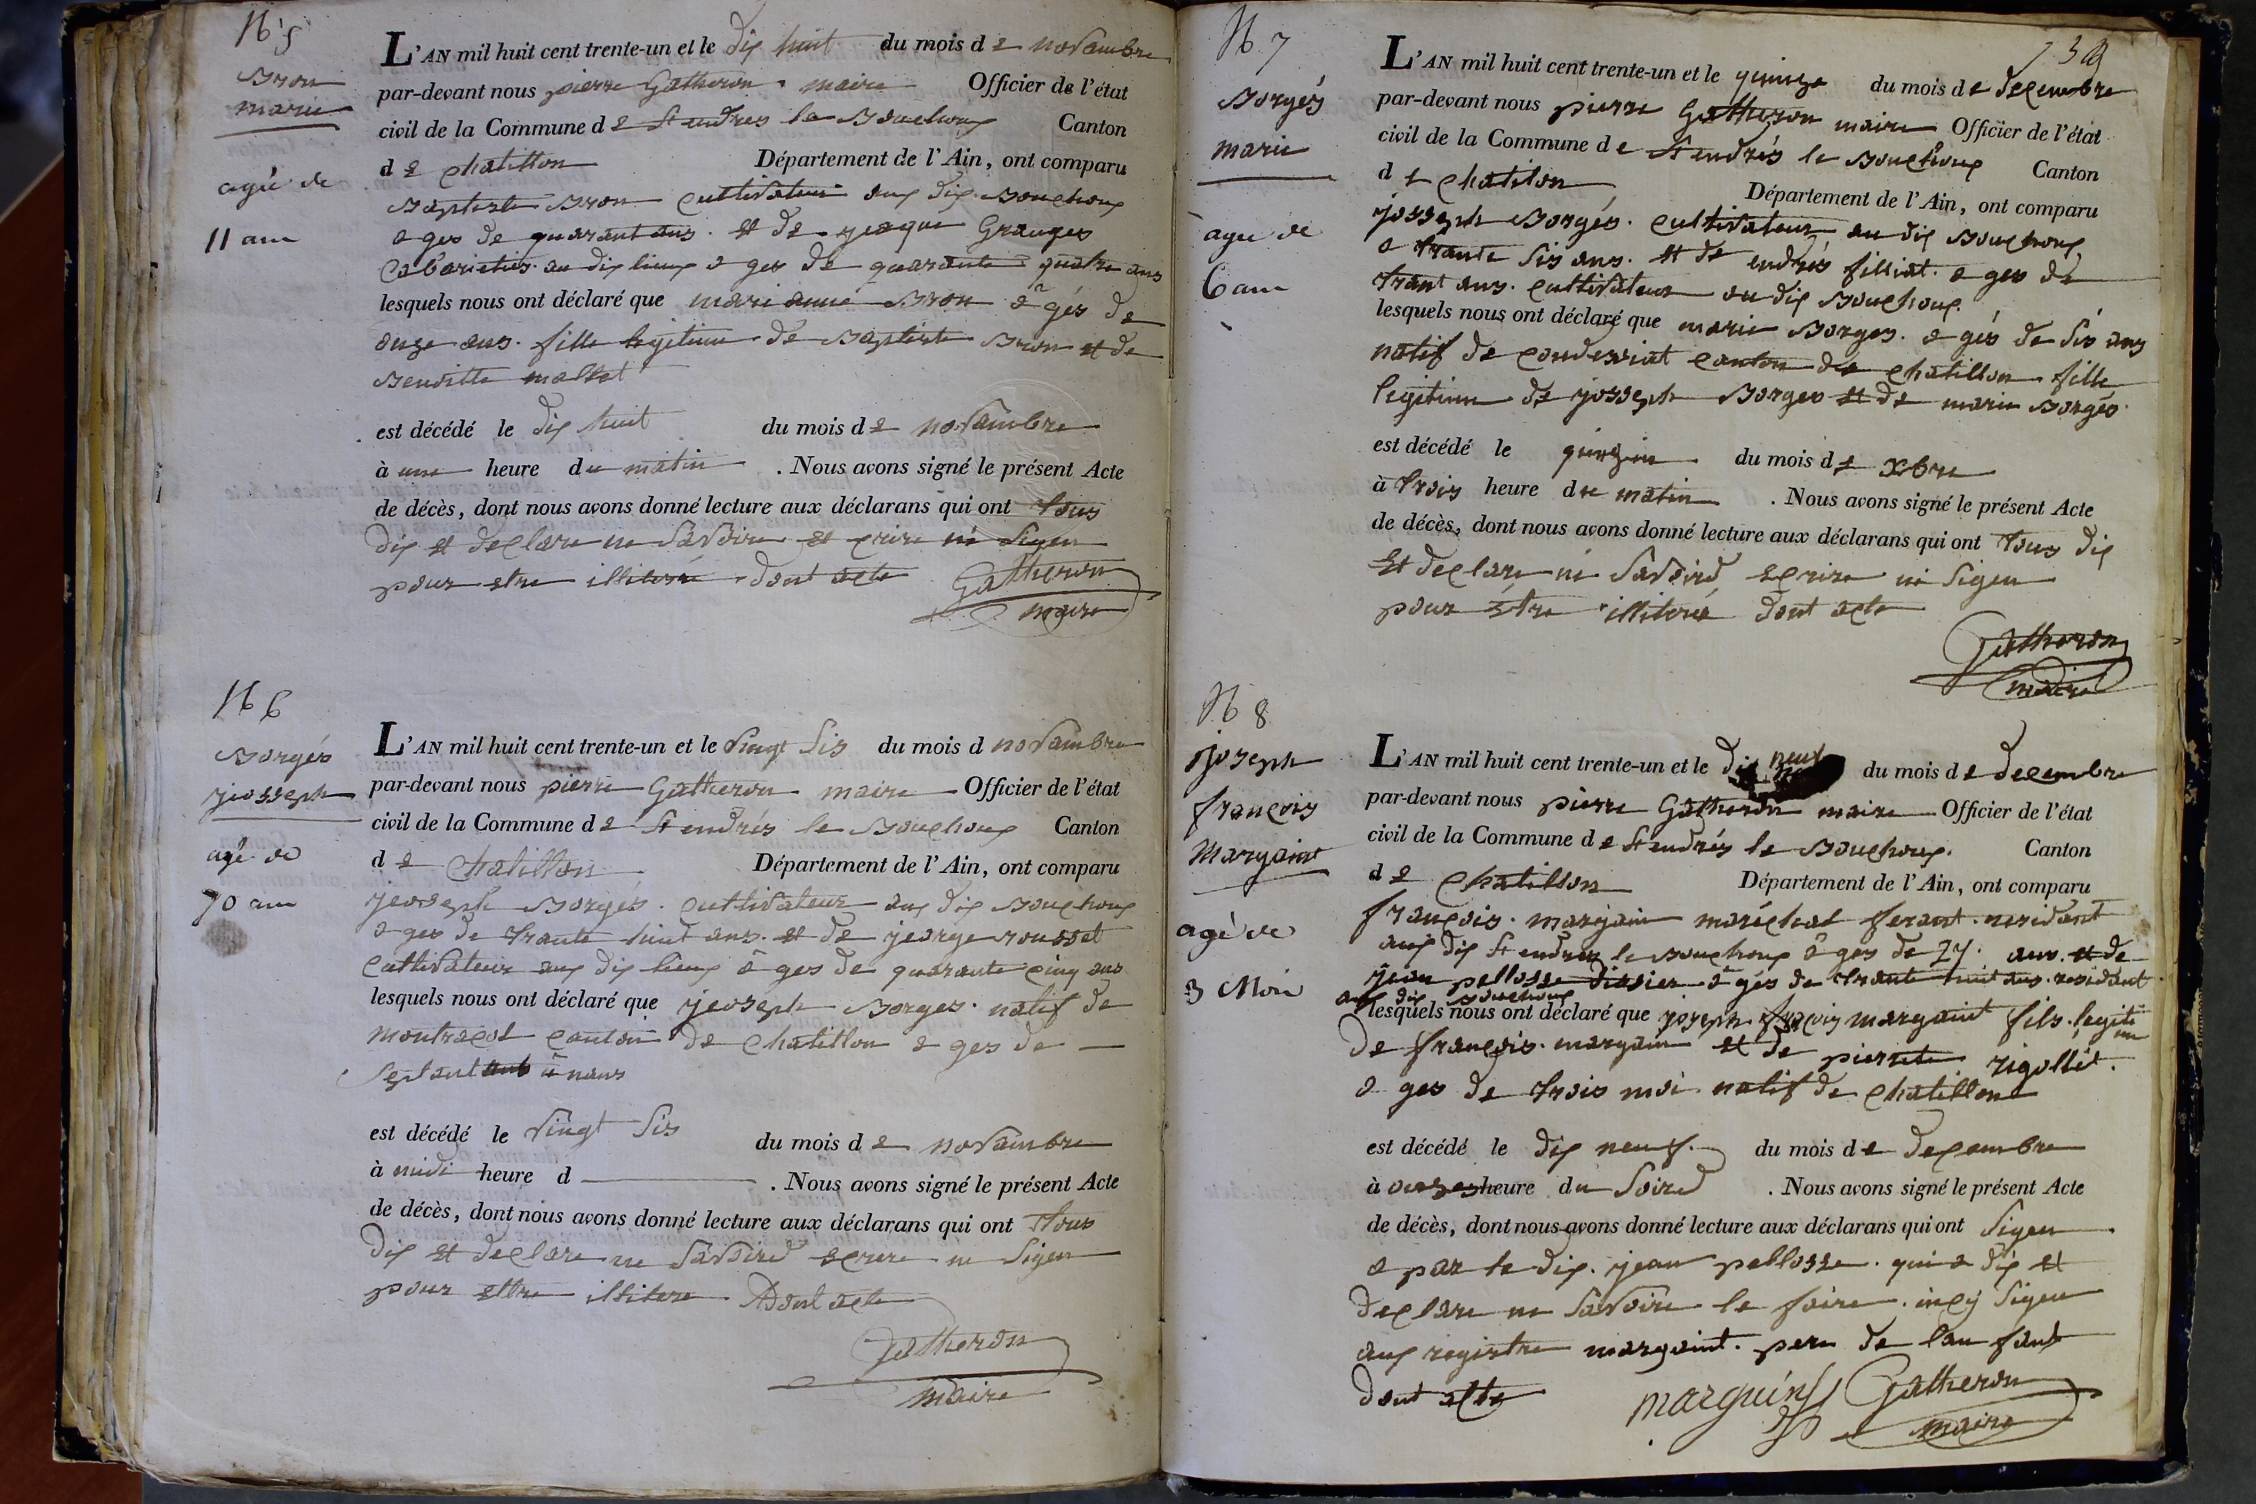 N° 5
Bron
marie
agée de
11 ans
L'AN mil huit cent trente-un et le dix huit du mois de novambre
par-devant nous pierre Gatheron maire Officier de l'état
civil de la Commune de St endres le Bouchoux Canton
de chatillon Département de l'Ain, ont comparu
Baptiste Bron cultivateur aux dix Bouchoux
a ges de quarant ans. et de jeaque Granges
Cabarieties au dix lieux a ges de quarante quatre ans
lesquels nous ont déclaré que mari anne Bron a gés de
onze ans. fille legitime de Baptiste Bron et de
Benditte
est décédé le dix huit du mois de novambre
à une heure du matin . Nous avons signé le présent Acte
de décès, dont nous avons donné lecture aux déclarans qui ont tous
dix et declare ne savoire et crire ni signer
pour etre illiteré dont acte Gatheron
maire
N° 6
Borgés
jeosseph
agé de
70 ans
L'AN mil huit cent trente-un et le vingt sis du mois d novambre
par-devant nous pierre Gatheron maire Officier de l'état
civil de la Commune de St endrés le Bouchoux Canton
de Chatillon Département de l'Ain, ont comparu
jeoseph Borgés. cultivateur aux dix Bouchoux
a ges de trante huit ans. et de jeorge rousset
cultivateur aux dix lieux a ges de quarante cinq ans
lesquels nous ont déclaré que jeoseph Borges. natif de
montracol canton de Chatillon a ges de
septant
est décédé le vingt sis du mois de novambre
à midi heure d . Nous avons signé le présent Acte
de décès, dont nous avons donné lecture aux déclarans qui ont tous
dix et declare ne savoird ecrere ni signer
pour ettre illitere Dont acte
Gatheron
maire
N° 7
Borgés
marie
agée de
6 ans
L'AN mil huit cent trente-un et le quinze du mois de decembre
par-devant nous pierre Gatheron maire Officier de l'état
civil de la Commune de St endrés le Bouchoux Canton
de chatilon Département de l'Ain, ont comparu
josseph Borgés. cultivateur au dix Bouchoux
a trante sis ans. et de endrés filliat. a ges de
trant ans. cultivateur au dix Bouchoux.
lesquels nous ont déclaré que marie Borges. a gés de sis ans
natif de condessiat canton de chatillon fille
legitime de josseph Borges et de marie Borgés
est décédé le du mois de xbre
à trois heure du matin . Nous avons signé le présent Acte
de décès, dont nous avons donné lecture aux déclarans qui ont tous dix
et declare ni savoird ecrire ni signer
pour étre illiteré dont acte
Gatheron
maire
N° 8
joseph
françois
Margaint
agé de
3 Mois
L'AN mil huit cent trente-un et le dix neuf du mois de decembre
par-devant nous pierre Gatheron maire Officier de l'état
civil de la Commune de St endrés le Bouchoux. Canton
de Chatillon Département de l'Ain, ont comparu
françois. margain maréchal ferant. residant
aux dix St endres le Bouchoux a ges de 27. ans. et de
jean pellosse a gés de trante huit ans. residant
aux dix Bouchoux
lesquels nous ont déclaré que joseph françois margaint fils. legitime
de françois. margain et de pierrete rigollet.
a ges de trois moi natif de Chatillon
est décédé le dix neuf. du mois de decembre
à onze heure du soird . Nous avons signé le présent Acte
de décès, dont nous avons donné lecture aux déclarans qui ont signer
a par le dix. jean pellosse. qui a dix et
declare ne savoire le faire. signer
aux registre margaint. pere de lan fant
dont acte marguint Gatheron
maire